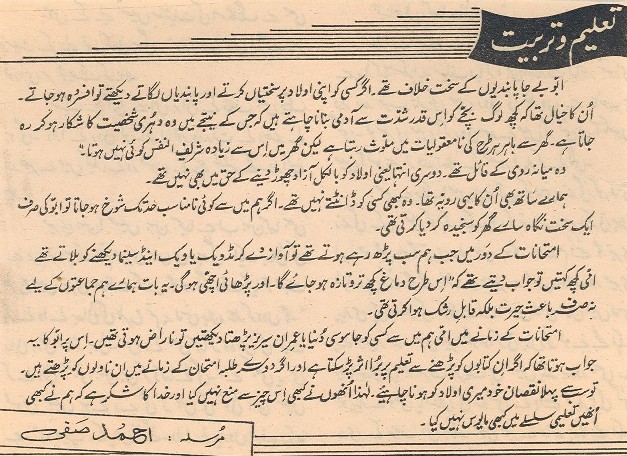 تعلیم و تربیت
ابّو بے جا پابندیوں کے سخت خلاف تھے۔ اگر کسی کو اپنی اولاد پر سختیاں کرتے اور پابندیاں لگاتے دیکھتے تو افسردہ ہو جاتے۔
اُن کا خیال تھا کہ کچھ لوگ بچّے کو اِس قدر شدّت سے آدمی بنانا چاہتے ہیں کہ جس کے نتیجے میں وہ دہری شخصیت کا شکار ہو کر رہ
جاتا ہے۔ گھر سے باہر ہر طرح کی نامعقولیات میں ملوّث رہتا ہے لیکن گھر میں اِس سے زیادہ شریف النفس کوئی نہیں ہوتا۔"
وہ میانہ روی کے قائل تھے۔ دوسری انتہا یعنی اولاد کو بالکل آزاد چھوڑ دینے کے حق میں بھی نہیں تھے۔
ہمارے ساتھ بھی اُن کا یہی رویہ تھا۔ وہ کبھی کسی کو ڈانٹتے نہیں تھے۔ اگر ہم میں سے کوئی نامناسب حد تک شوخ ہو جاتا تو ابّو کی صرف
ایک سخت نگاہ سارے گھر کو سنجیدہ کر دیا کرتی تھی۔
امتحانات کے دَور میں جب ہم سب پڑھ رہے ہوتے تھے تو آواز دے کر مڈویک یا ویک اینڈ سینما دیکھنے کو بلاتے تھے
امّی کچھ کہتیں تو جواب دیتے تھے کہ "اِس طرح دماغ کچھ تر و تازہ ہو جائے گا۔ اور پڑھائی اچھی ہوگی۔ یہ بات ہمارے ہم جماعتوں کے لیے
نہ صرف باعثِ حیرت بلکہ قابلِ رشک ہوا کرتی تھی۔
امتحانات کے زمانے میں امّی ہم میں سے کسی کو جاسوسی دُنیا یا عمران سیریز پڑھتا دیکھتیں تو ناراض ہوتی تھیں۔ اِس پر ابّو کا یہ
جواب ہوتا تھا کہ اگر ان کتابوں کو پڑھنے سے تعلیم پر بُرا اثر پڑ سکتا ہے اور اگر دوسرے طلبہ امتحان کے زمانے میں ان ناولوں کو پڑھتے ہیں۔
تو سب سے پہلا نقصان خود میری اولاد کو ہونا چاہیئے۔ لہٰذا اُنھوں نے کبھی اِس چیز سے منع نہیں کیا اور خدا کا شکر ہے کہ ہم نے کبھی
اُنھیں تعلیمی سلسلے میں کبھی مایوس نہیں کیا۔
مُرسلہ : احمد صفی